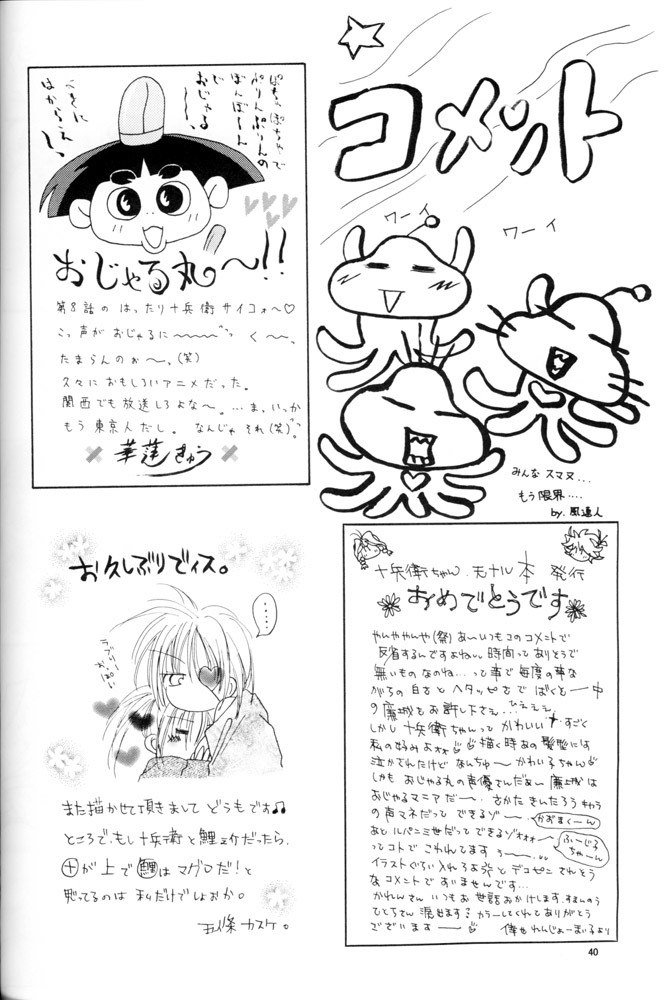 コメント
ワーイ
ワーイ
みんなスマヌ...
もう限界....
by. 風道人
ぽちゃぽちゃで
ぷりんぷりんの
ぼんぼーん
じゃ
おじゃる
おじゃる丸〜!!
第8話の はったり十兵衛 サイコォ〜♡
こっ声が おじゃるに〜〜〜 く〜〜、
たまらんのぉ〜〜、(笑)
久々におもしろいアニメだった。
関西でも放送しろよな〜。…ま、いっか
もう東京人だし。なんじゃ それ(笑)。
華蓮きゅう
お久しぶりでイス。
‥‥
ラブリー
また描かせて頂きまして どうもです♫
ところで、もし十兵衛と鯉之介だったら、
㊉が上で鯉はマグロだ!と
思ってるのは 私だけでしょおか。
五條 カスケ。
十兵衛ちゃん. モナル本 発行
おめでとうです
やんややんや(祭) あ〜いつもコのコメントで
反省するんですよねぃ。時間ってありそうで
無いものなのね...って事で毎度の事な
がらの 白さと ヘタッピさで ばくとー中
の廉城をお許し下さえ... ひぇぇぇ
しかし 十兵衛ちゃんって かわいい すごく
私の好みよ 描く時あの髪型には
泣かされたけど なんちゅ〜 かわい子ちゃん
しかも おじゃる丸の声優さんだぁ〜 廉城は
おじゃるマニアだ〜. さかた きんたろう キャラ
の声マネだって できるゾ〜 かおまく〜ん
あと ルパン三世だって できるゾ
ふ〜じ子
ちゃ〜ん
ってコトで こわれてます う〜〜
イラストぐらい入れろよ とデコピン されとう
なコメントで すいませんです...
かれんさん いつも お世話おかけします.
カラーしてくれてありがとう
ございます〜
40